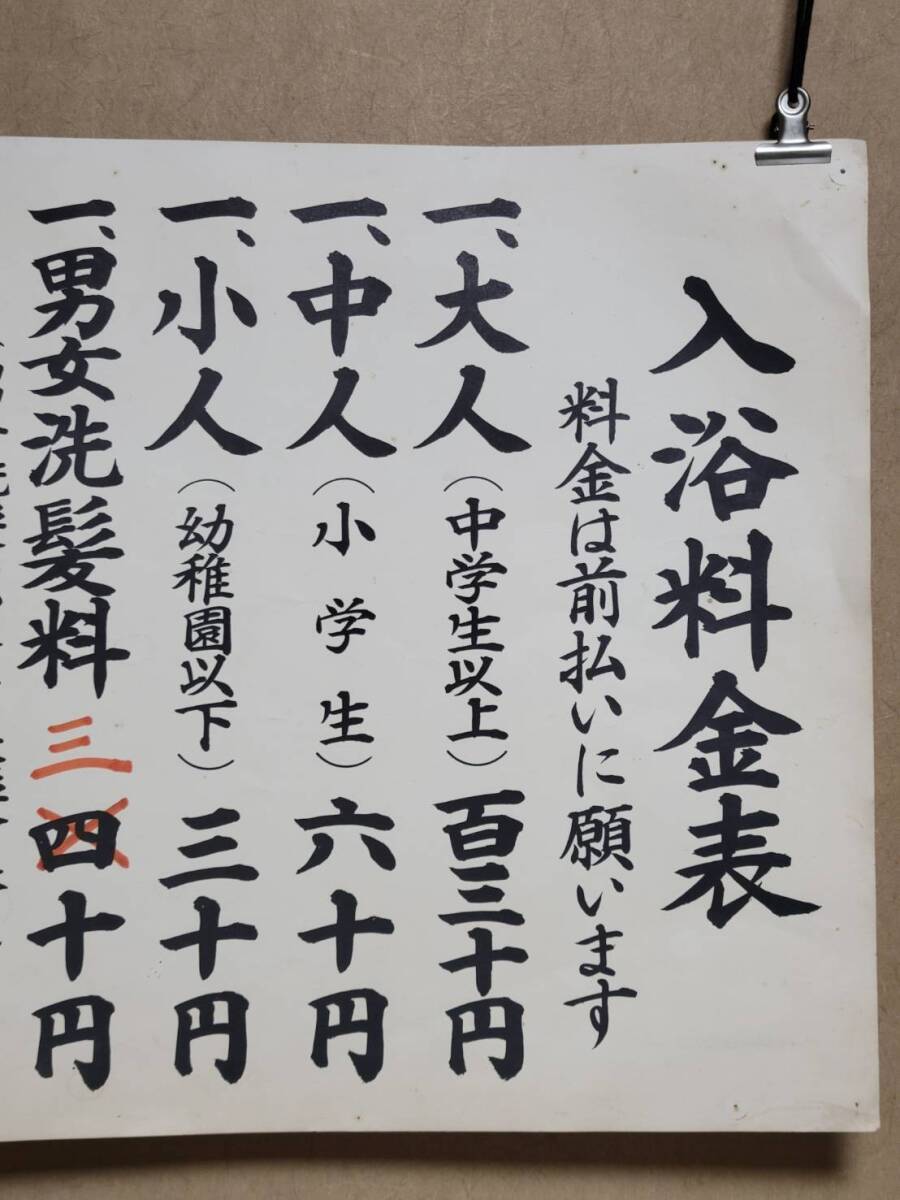 入浴料金表
料金は前払いに願います
一、大人（中学生以上）百三十円
一、中人（小学生）六十円
一、小人（幼稚園以下）三十円
一、男女洗髪料 三四十円